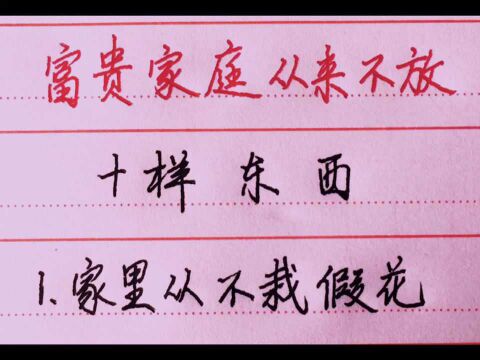 富贵家庭从来不放
十样东西
1.家里从不栽假花